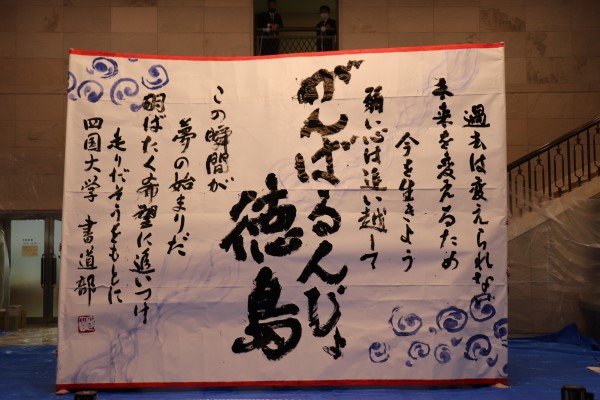 過去は変えられない
未来を変えるため
今を生きよう
弱い心は追い越して
がんばるんじょ
徳島
この瞬間が
夢の始まりだ
羽ばたく希望に追いつけ
走りだそうをもとに
四国大学 書道部